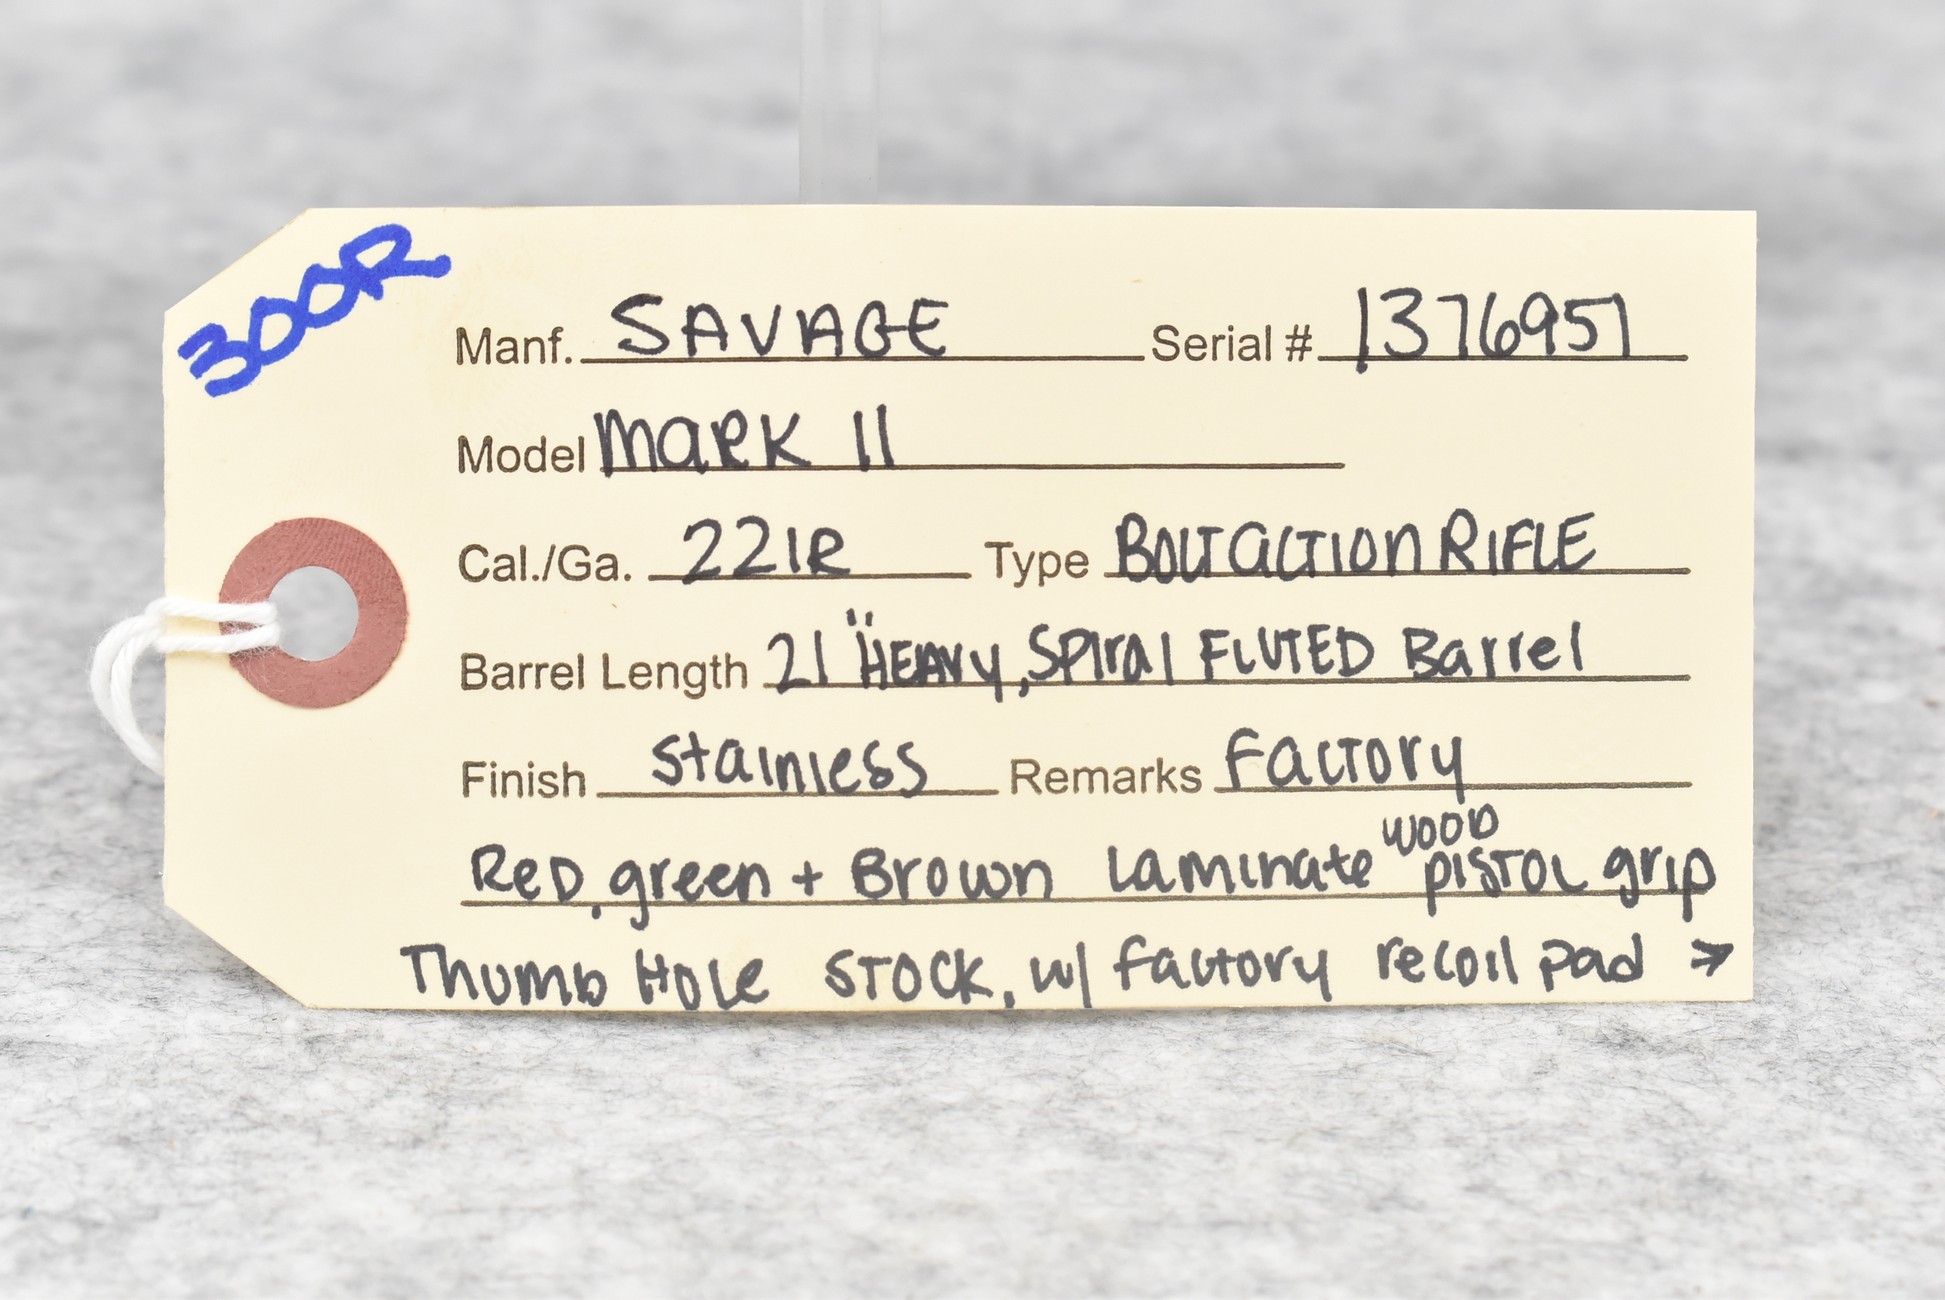 300R
Manf. SAVAGE Serial # 1376951
Model Mark II
Cal./Ga. 22LR Type BOLT ACTION RIFLE
Barrel Length 21" HEAVY, Spiral FLUTED Barrel
Finish Stainless Remarks Factory
wood
Red, green + Brown Laminate pistol grip
Thumb Hole STOCK, w/ factory recoil pad →